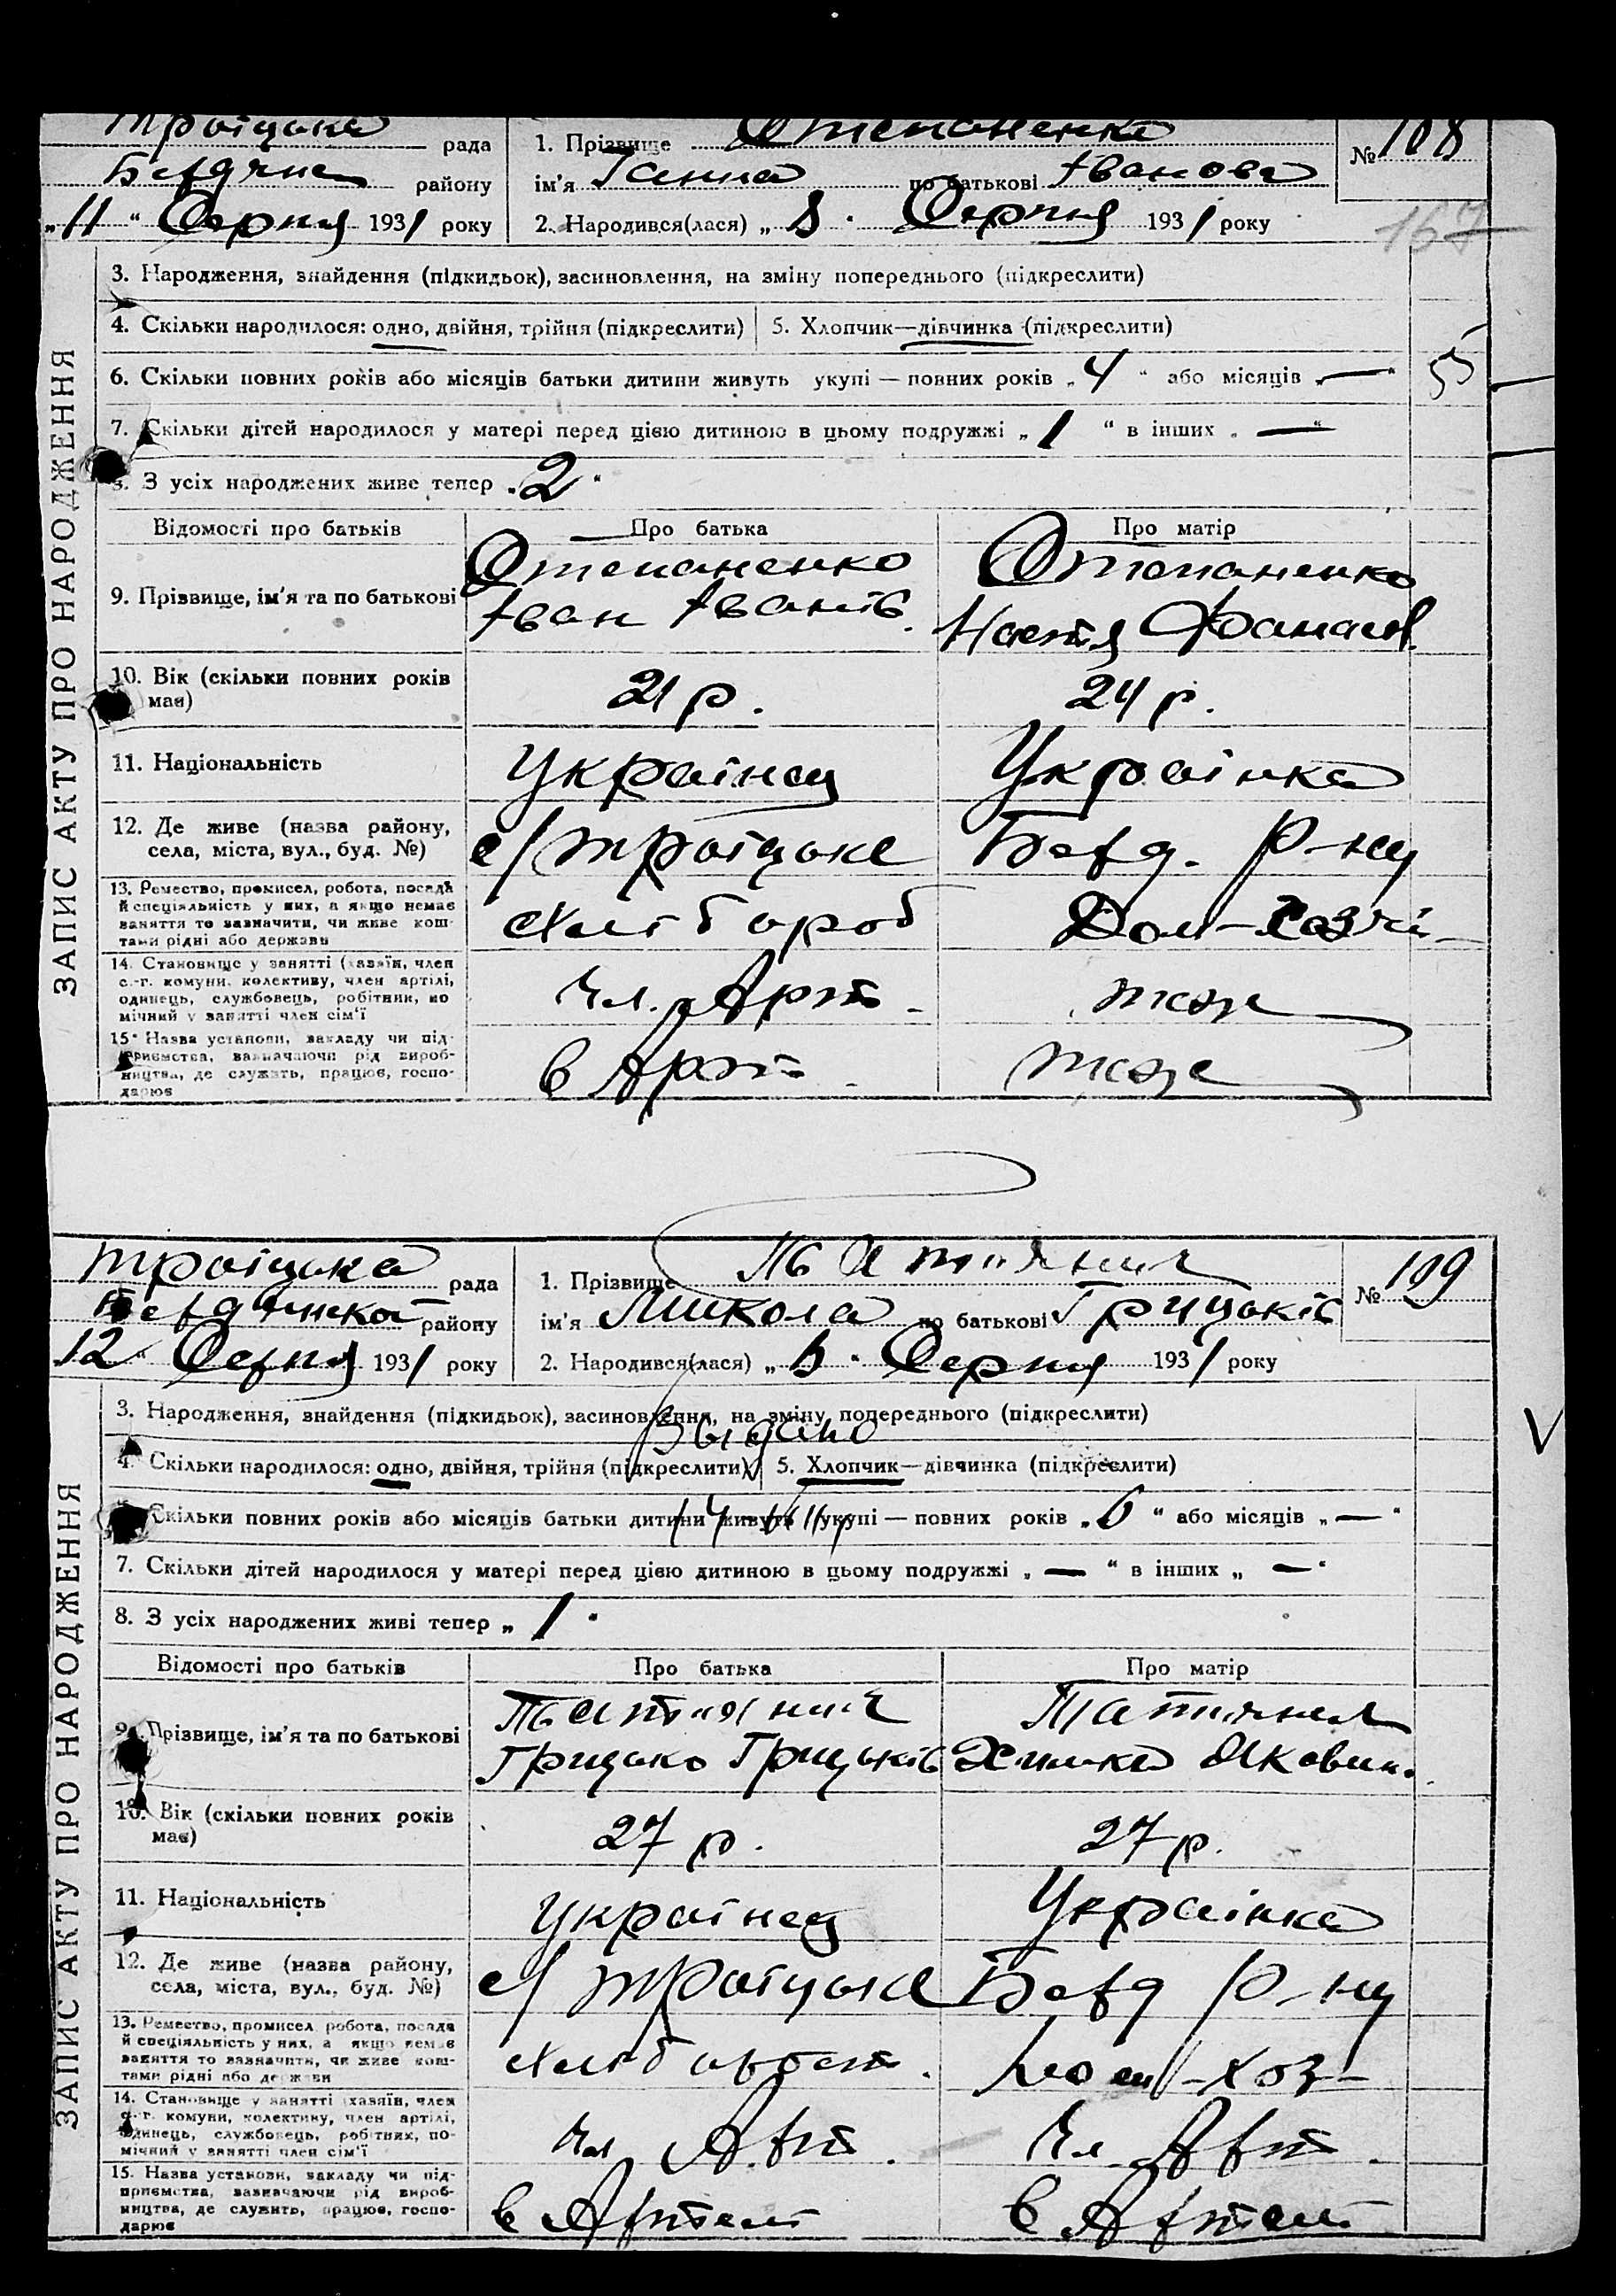 Троіцька рада 1. Прізвище Степаненко № 108
району ім'я Ганна по батькові Іванова
„11“ Серпня 1931 року 2. Народився(лася) „8“ Серпня 1931 року
167
ЗАПИС АКТУ ПРО НАРОДЖЕННЯ
3. Народження, знайдення (підкидьок), засиновлення, на зміну попереднього (підкреслити)
4. Скільки народилося: одно, двійня, трійня (підкреслити) 5. Хлопчик—дівчинка (підкреслити)
6. Скільки повних років або місяців батьки дитини живуть укупі — повних років „4“ або місяців „—“ 55
7. Скільки дітей народилося у матері перед цією дитиною в цьому подружжі „1“ в інших „—“
8. З усіх народжених живе тепер „2“
Відомості про батьків Про батька Про матір
9. Прізвище, ім'я та по батькові Степаненко Степаненко
Іван Іванів. Настя
10. Вік (скільки повних років 21 р. 24 р.
має)
11. Національність Українец Украінка
12. Де живе (назва району, с/Троіцьке Берд. р-ну
села, міста, вул., буд. №)
13. Ремество, промисел, робота, посада
й спеціяльність у них, а якщо немає хлібороб
заняття то зазначити, чи живе кош-
тами рідні або держави
14. Становище у занятті (хазяїн, член
с.-г. комуни, колективу, член артілі, Чл. Арт. тоже
одинець, службовець, робітник, по
мічний у занятті член сім'ї
15. Назва установи, закладу чи під-
приємства, зазначаючи рід вироб- в Арт. тоже
ництва, де служить, працює, госпо-
дарює
Троіцька рада 1. Прізвище № 109
району ім'я Микола по батькові Грицьків
12 Серпня 1931 року 2. Народився(лася) „5“ Серпня 1931 року
ЗАПИС АКТУ ПРО НАРОДЖЕННЯ
3. Народження, знайдення (підкидьок), засиновлення, на зміну попереднього (підкреслити)
V
4. Скільки народилося: одно, двійня, трійня (підкреслити) 5. Хлопчик—дівчинка (підкреслити)
6. Скільки повних років або місяців батьки дитини живуть укупі — повних років „6“ або місяців „—“
7. Скільки дітей народилося у матері перед цією дитиною в цьому подружжі „—“ в інших „—“
8. З усіх народжених живі тепер „1“
Відомості про батьків Про батька Про матір
9. Прізвище, ім'я та по батькові
Грицько Грицьків
10. Вік (скільки повних років 27 р. 27 р.
має)
11. Національність Українец Украінка
12. Де живе (назва району, с/Троіцьке Берд р-ну
села, міста, вул., буд. №)
13. Ремество, промисел, робота, посада
й спеціяльність у них, а якщо немає
заняття то зазначити, чи живе кош-
тами рідні або держави
14. Становище у занятті (хазяїн, член
с.-г. комуни, колективу, член артілі, Чл Арт. Чл Арт.
одинець, службовець, робітник, по-
мічний у занятті член сім'ї
15. Назва установи, закладу чи під-
приємства, зазначаючи рід вироб-
ництва, де служить, працює, госпо- в Артелі в Артелі
дарює